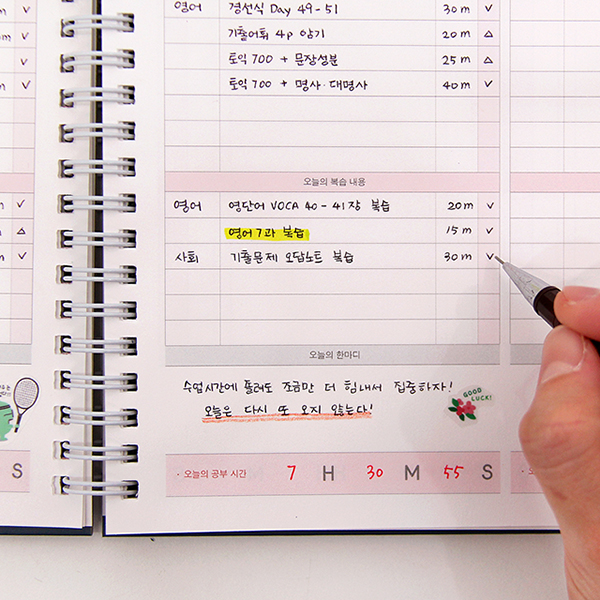 영어 경선식 Day 49-51 30m ✓
기출어휘 4p 암기 20m △
토익 700 + 문장성분 25m △
토익 700 + 명사·대명사 40m ✓
오늘의 복습 내용
영어 영단어 VOCA 40-41장 복습 20m ✓
영어 7과 복습 15m ✓
사회 기출문제 오답노트 복습 30m ✓
오늘의 한마디
수업시간에 졸려도 조금만 더 힘내서 집중하자!
오늘은 다시 또 오지 않는다!
GOOD LUCK!
S · 오늘의 공부 시간 7 H 30 M 55 S · 오늘의